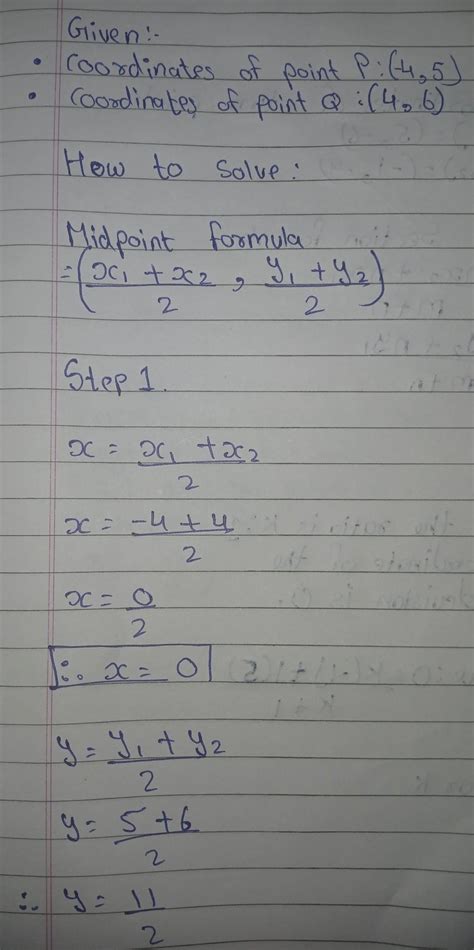 Given:-
• Coordinates of point P:(-4,5)
• Coordinates of point Q:(4,6)
How to Solve:
Midpoint formula
=(x₁ + x₂/2, y₁ + y₂/2)
Step 1.
x = x₁ + x₂/2
x = -4 + 4/2
x = 0/2
∴ x = 0
y = y₁ + y₂/2
y = 5+6/2
∴ y = 11/2